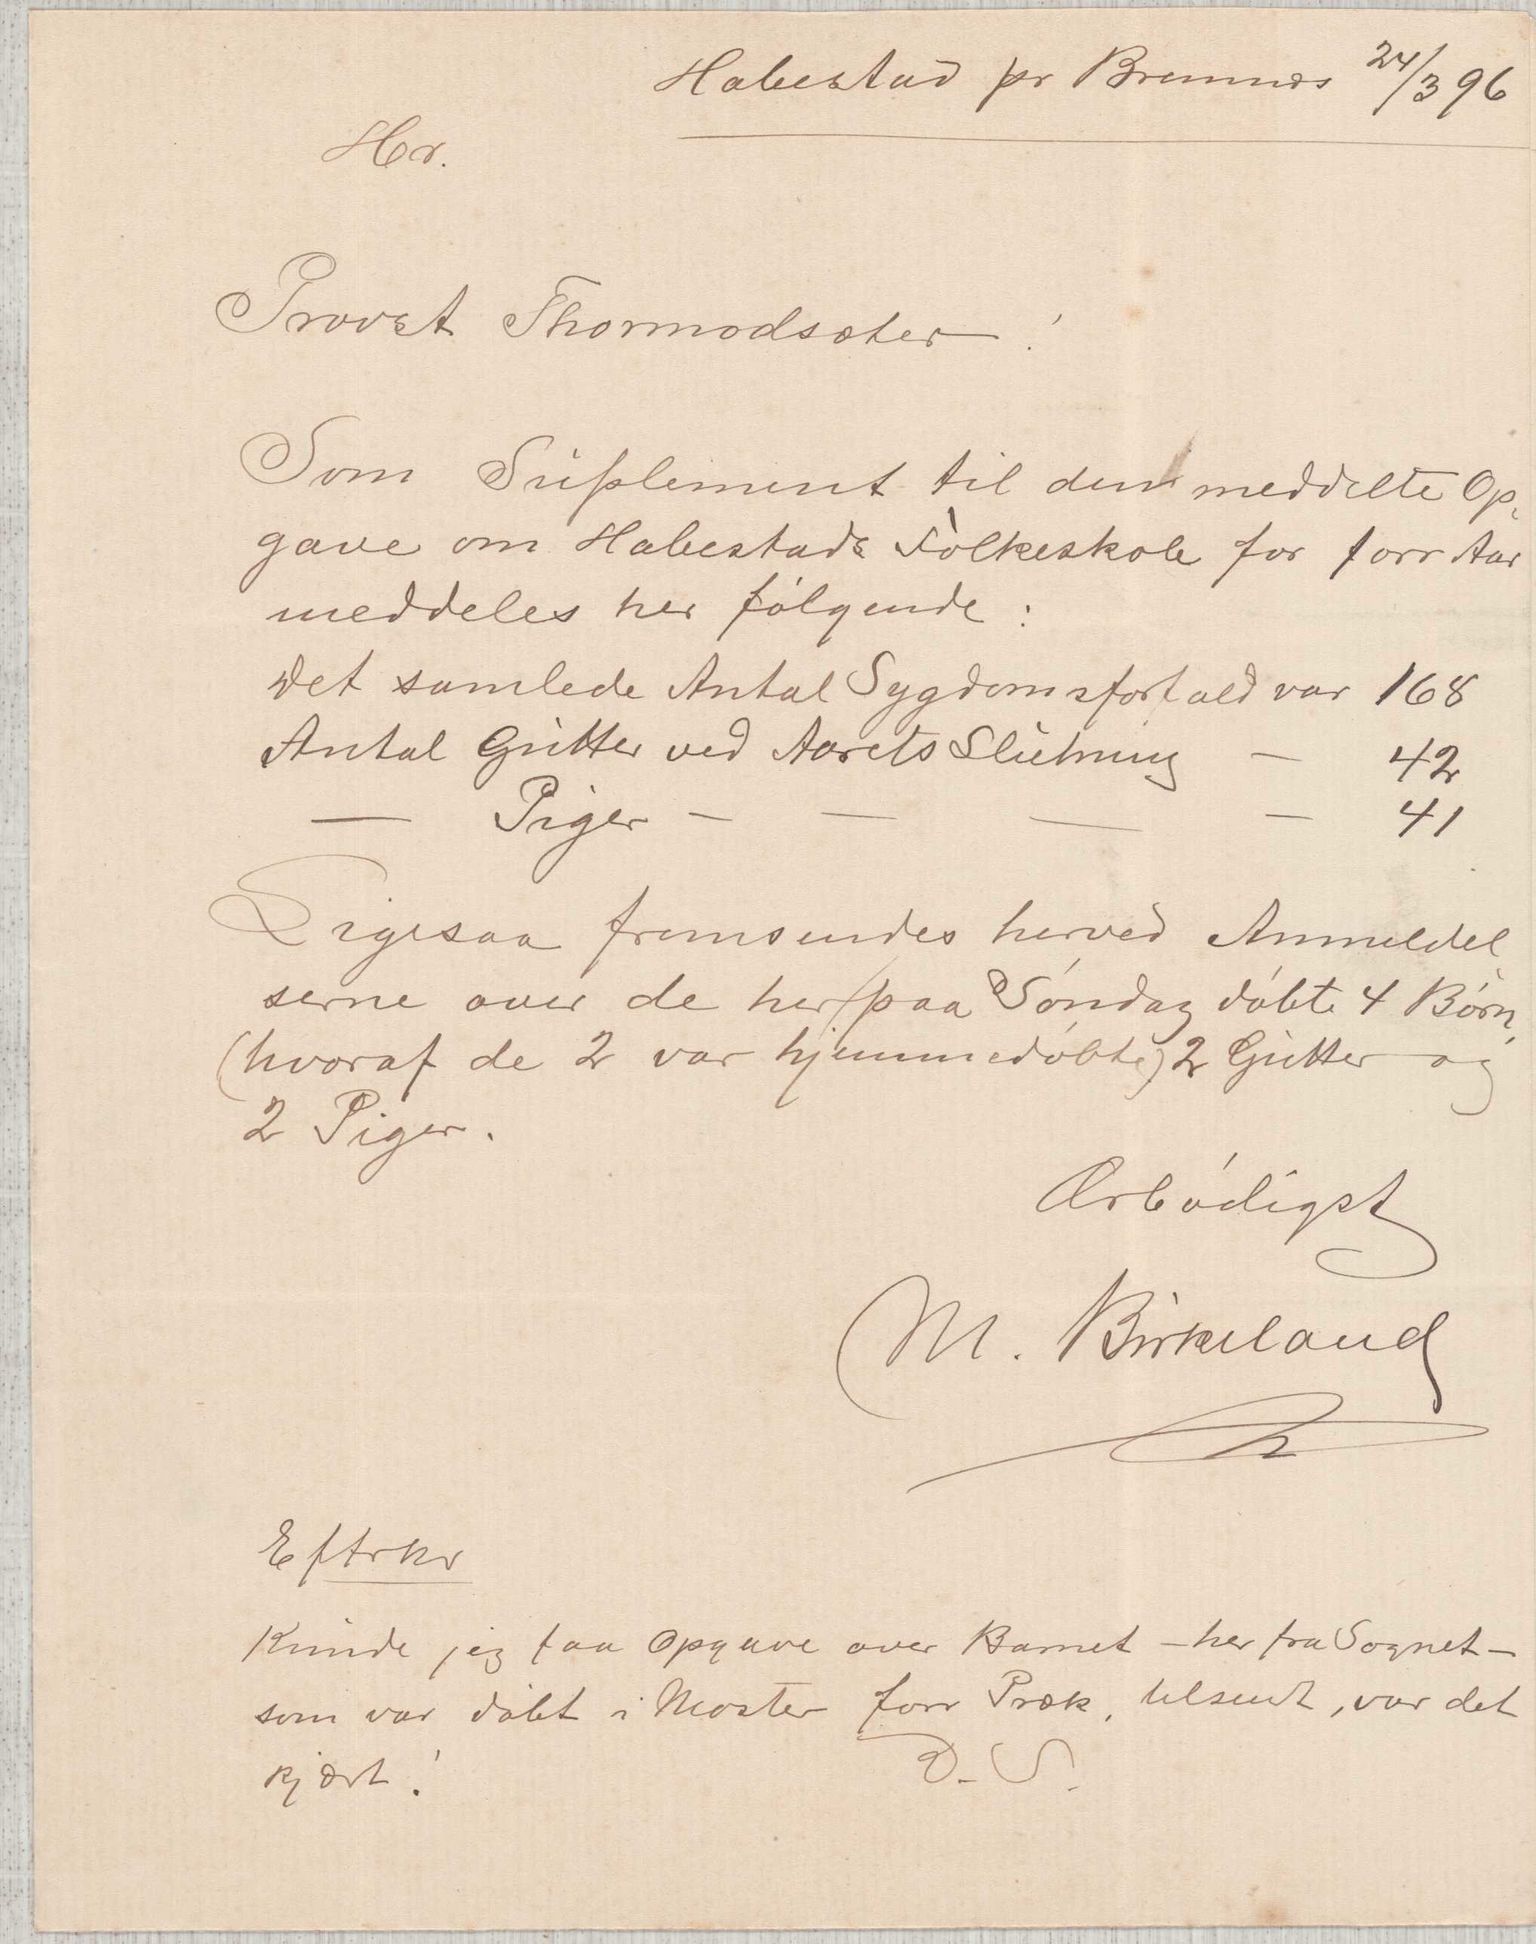 Habestad pr Bremnes 24/3 96
Hr.
Provst Thormodsæter!
Som Suplement til den meddelte Op-
gave om Habestads Folkeskole for forr Aar
meddeles her følgende:
Det samlede Antal Sygdomsforfald var 168
Antal Gutter ved Aarets Slutning — 42
— Piger — — — — 41
Ligesaa fremsendes herved Anmeldel
serne over de her paa Søndag døbte 4 Børn
(hvoraf de 2 var hjemmedøbte) 2 Gutter og
2 Piger.
Ærbødigst
M. Birkeland
Eftrkr
Kunde jeg faa Opgave over Barnet – her fra Sognet –
som var døbt i Moster forr Præk. tilsendt, var det
kjært!
D. S.